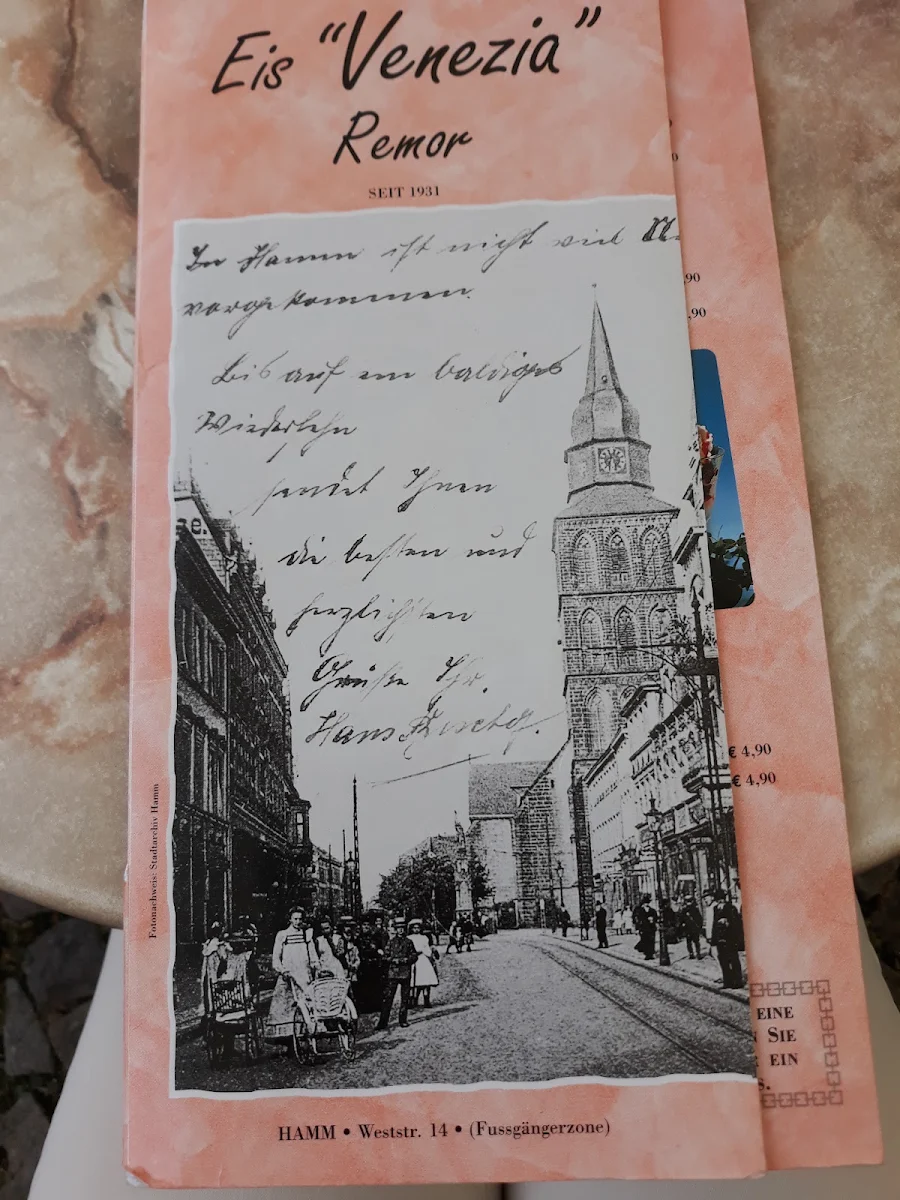 Eis "Venezia"
Remor
SEIT 1931
In Hamm ist nicht viel
vorgekommen.
Bis auf ein baldiges
Wiedersehn
sendet Ihnen
die besten und
herzlichsten
Grüße Ihr.
Hans
se.
Fotonachweis: Stadtarchiv Hamm
HAMM • Weststr. 14 • (Fussgängerzone)
0
,90
,90
€ 4,90
€ 4,90
EINE
SIE
EIN
S.